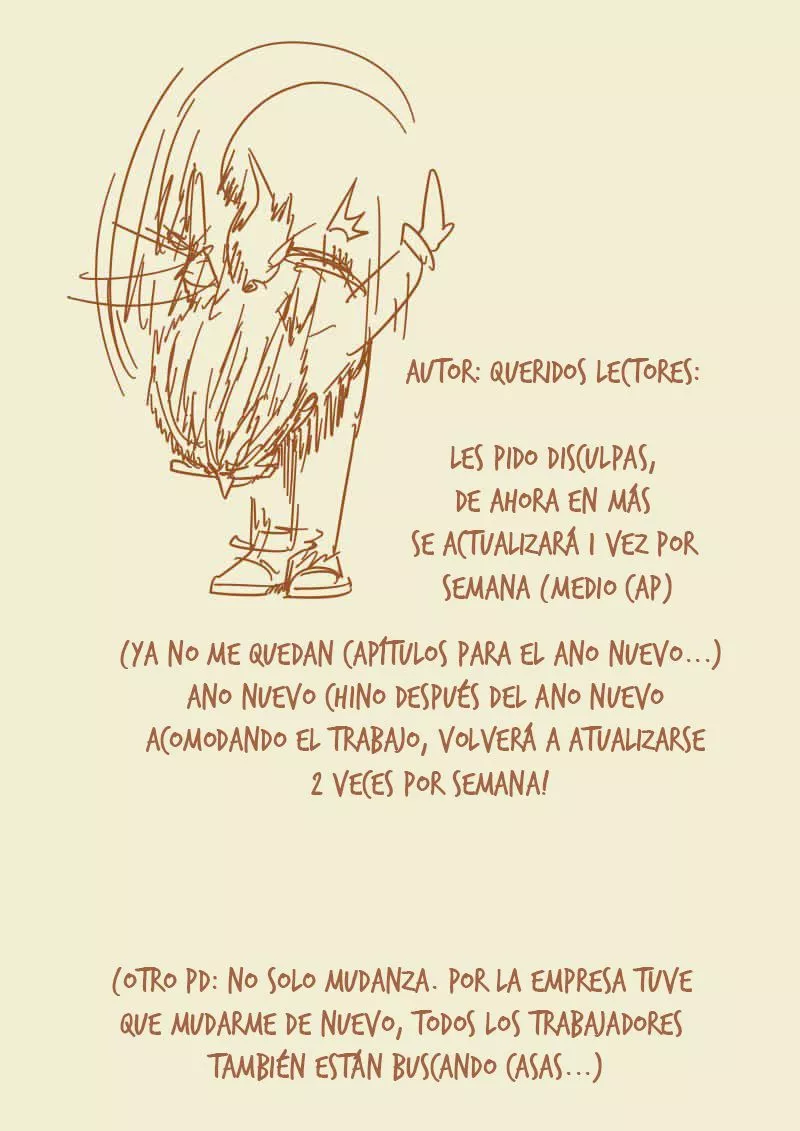 AUTOR: QUERIDOS LECTORES:
LES PIDO DISCULPAS,
DE AHORA EN MÁS
SE ACTUALIZARÁ 1 VEZ POR
SEMANA (MEDIO CAP)
(YA NO ME QUEDAN CAPÍTULOS PARA EL ANO NUEVO...)
ANO NUEVO CHINO DESPUÉS DEL ANO NUEVO
ACOMODANDO EL TRABAJO, VOLVERÁ A ATUALIZARSE
2 VECES POR SEMANA!
(OTRO PD: NO SOLO MUDANZA. POR LA EMPRESA TUVE
QUE MUDARME DE NUEVO, TODOS LOS TRABAJADORES
TAMBIÉN ESTÁN BUSCANDO CASAS...)